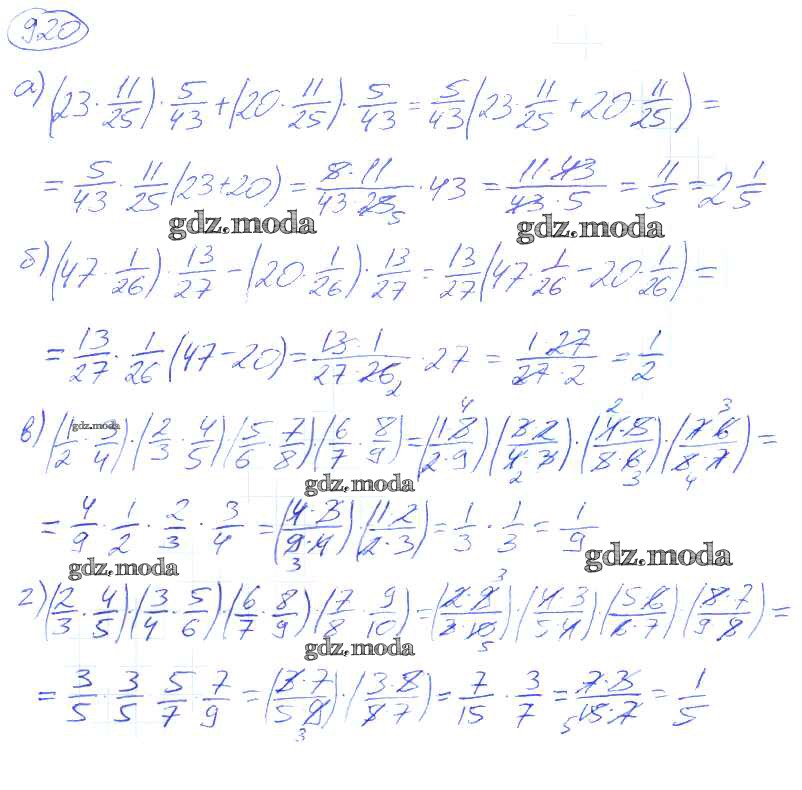 920
а) (23 · 11/25) · 5/43 + (20 · 11/25) · 5/43 = 5/43 (23 · 11/25 + 20 · 11/25) =
= 5/43 · 11/25 (23+20) = 5·11/43·25 5 · 43 = 11·43/43·5 = 11/5 = 2 1/5
gdz.moda gdz.moda
б) (47 · 1/26) · 13/27 − (20 · 1/26) · 13/27 = 13/27 (47 · 1/26 − 20 · 1/26) =
= 13/27 · 1/26 (47−20) = 13·1/27·26 2 · 27 = 1·27/27·2 = 1/2
в) (1/2 · 3/4) · (2/3 · 4/5) (5/6 · 7/8) (6/7 · 8/9) = (1·8 4/2·9) (3·2/4 2·3) · (4·5 2/5·6 3) · (7·6 3/8 4·7) =
gdz.moda
gdz.moda
= 4/9 · 1/2 · 2/3 · 3/4 = (4·3/9 3·4) · (1·2/2·3) = 1/3 · 1/3 = 1/9
gdz.moda gdz.moda
г) (2/3 · 4/5) · (3/4 · 5/6) · (6/7 · 8/9) (7/8 · 9/10) = (2·9 3/3·10 5) · (4·3/5·4) · (5·6/6·7) · (8·7/9·8) =
gdz.moda
= 3/5 · 3/5 · 5/7 · 7/9 = (3·7/5·9 3) · (3·5/5·7) = 7/15 · 3/7 = 7·3/5 15·7 = 1/5